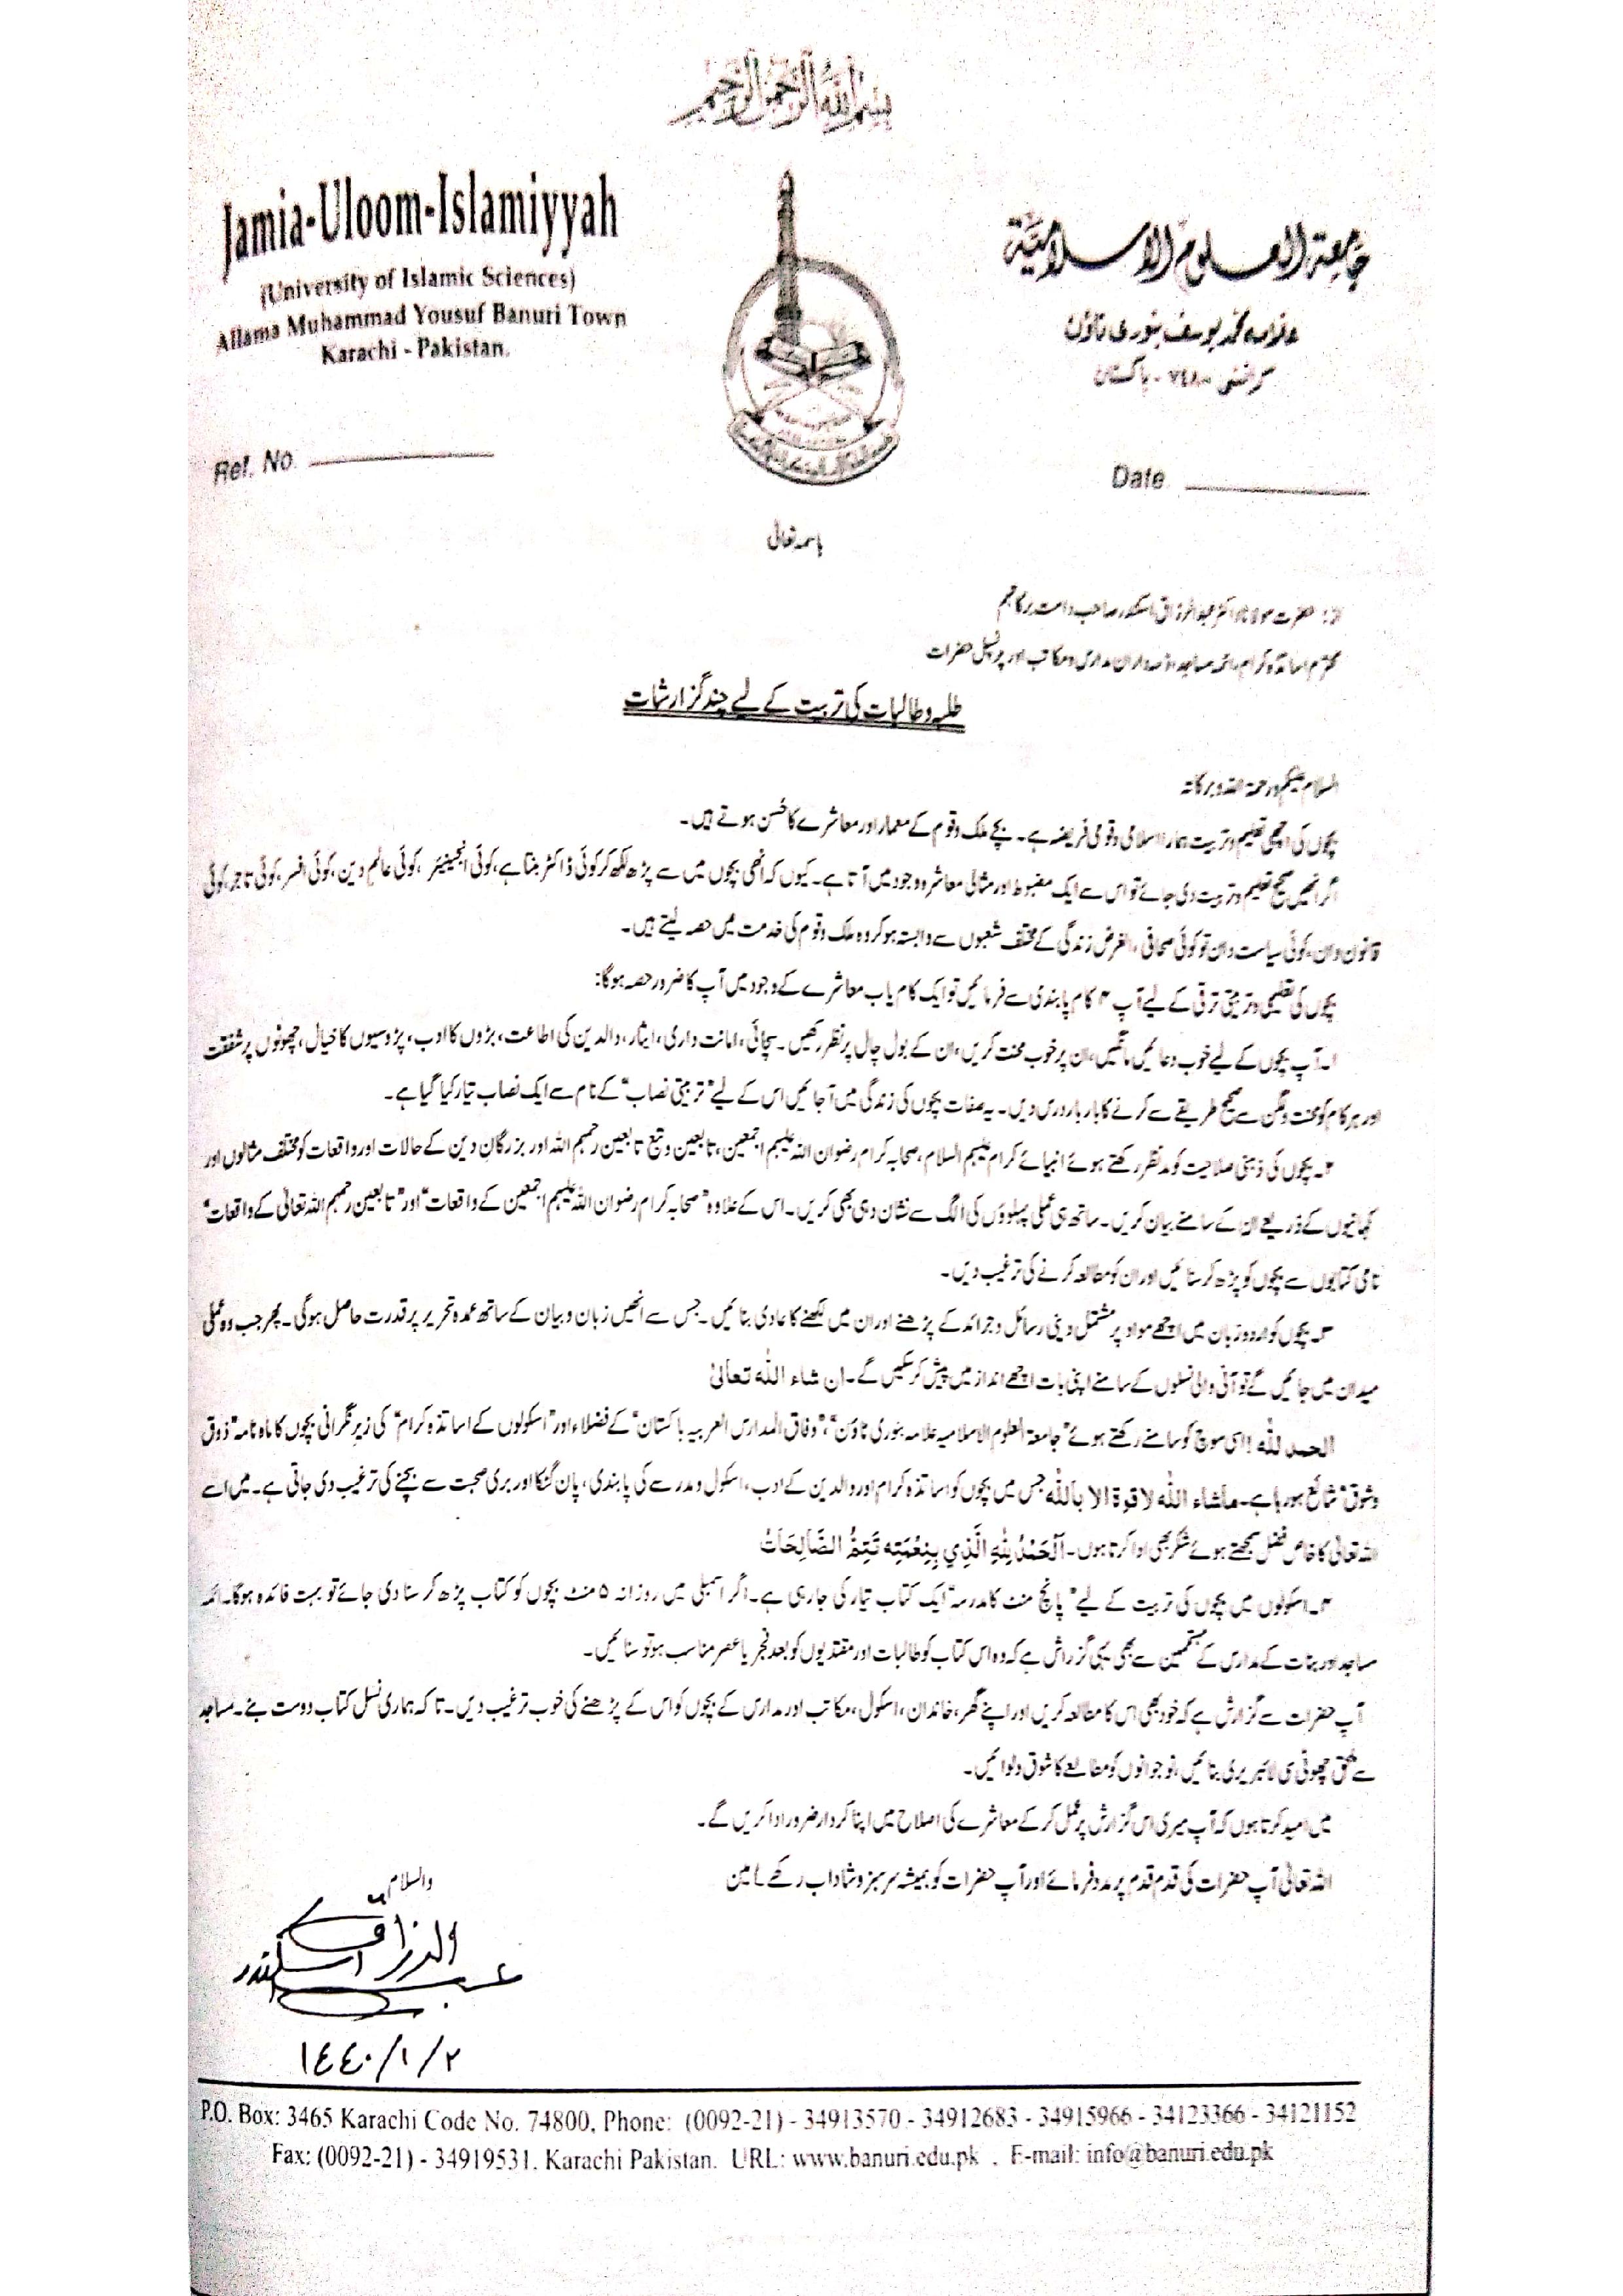 بسم الله الرحمن الرحيم
Jamia-Uloom-Islamiyyah
(University of Islamic Sciences)
Allama Muhammad Yousuf Banuri Town
Karachi - Pakistan.
جامعة العلوم الاسلامية
علامہ محمد یوسف بنوری ٹاؤن
کراتشی ٧٤٨٠٠ - پاکستان
Ref. No.
Date
باسمہ تعالیٰ
از: حضرت مولانا ڈاکٹر عبدالرزاق اسکندر صاحب دامت برکاتہم
محترم اساتذہ کرام، ائمہ مساجد، ذمہ داران مدارس و مکاتب اور پرنسپل حضرات
طلبہ و طالبات کی تربیت کے لیے چند گزارشات
السلام علیکم ورحمۃ اللہ وبرکاتہ
بچوں کی اچھی تعلیم و تربیت ہمارا اسلامی و قومی فریضہ ہے۔ بچے ملک و قوم کے معمار اور معاشرے کا حُسن ہوتے ہیں۔
اگر انھیں صحیح تعلیم و تربیت دی جائے تو اس سے ایک مضبوط اور مثالی معاشرہ وجود میں آتا ہے۔ کیوں کہ انھی بچوں میں سے پڑھ لکھ کر کوئی ڈاکٹر بنتا ہے، کوئی انجینئیر، کوئی عالم دین، کوئی افسر، کوئی تاجر، کوئی
قانون دان، کوئی سیاست دان تو کوئی صحافی، الغرض زندگی کے مختلف شعبوں سے وابستہ ہو کر وہ ملک و قوم کی خدمت میں حصہ لیتے ہیں۔
بچوں کی تعلیمی و تربیتی ترقی کے لیے آپ ۴ کام پابندی سے فرمائیں تو ایک کام یاب معاشرے کے وجود میں آپ کا ضرور حصہ ہوگا:
۱۔ آپ بچوں کے لیے خوب دعائیں مانگیں، ان پر خوب محنت کریں، ان کے بول چال پر نظر رکھیں۔ سچائی، امانت داری، ایثار، والدین کی اطاعت، بڑوں کا ادب، پڑوسیوں کا خیال، چھوٹوں پر شفقت
اور ہر کام کو محنت و لگن سے صحیح طریقے سے کرنے کا بار بار درس دیں۔ یہ صفات بچوں کی زندگی میں آجائیں اس کے لیے "تربیتی نصاب" کے نام سے ایک نصاب تیار کیا گیا ہے۔
۲۔ بچوں کی ذہنی صلاحیت کو مدنظر رکھتے ہوئے انبیائے کرام علیہم السلام، صحابہ کرام رضوان اللہ علیہم اجمعین، تابعین و تبع تابعین رحمہم اللہ اور بزرگانِ دین کے حالات اور واقعات کو مختلف مثالوں اور
کہانیوں کے ذریعے ان کے سامنے بیان کریں۔ ساتھ ہی عملی پہلوؤں کی الگ سے نشان دہی بھی کریں۔ اس کے علاوہ "صحابہ کرام رضوان اللہ علیہم اجمعین کے واقعات" اور "تابعین رحمہم اللہ تعالیٰ کے واقعات"
نامی کتابوں سے بچوں کو پڑھ کر سنائیں اور ان کو مطالعہ کرنے کی ترغیب دیں۔
۳۔ بچوں کو اردو زبان میں اچھے مواد پر مشتمل دینی رسائل و جرائد کے پڑھنے اور ان میں لکھنے کا عادی بنائیں۔ جس سے انھیں زبان و بیان کے ساتھ عمدہ تحریر پر قدرت حاصل ہوگی۔ پھر جب وہ عملی
میدان میں جائیں گے تو آنی والی نسلوں کے سامنے اپنی بات اچھے انداز میں پیش کر سکیں گے۔ ان شاء اللہ تعالیٰ
الحمد للہ! اسی سوچ کو سامنے رکھتے ہوئے "جامعۃ العلوم الاسلامیہ علامہ بنوری ٹاؤن"، "وفاق المدارس العربیہ پاکستان" کے فضلاء اور "اسکولوں کے اساتذہ کرام" کی زیر نگرانی بچوں کا ماہ نامہ "ذوق
و شوق" شائع ہو رہا ہے۔ ماشاء اللہ لا قوۃ الا باللہ جس میں بچوں کو اساتذہ کرام اور والدین کے ادب، اسکول و مدرسے کی پابندی، پان گٹکا اور بری صحبت سے بچنے کی ترغیب دی جاتی ہے۔ میں اسے
اللہ تعالیٰ کا خاص فضل سمجھتے ہوئے شکر بھی ادا کرتا ہوں۔ اَلْحَمْدُ لِلّٰهِ الَّذِي بِنِعْمَتِهِ تَتِمُّ الصَّالِحَاتُ
۴۔ اسکولوں میں بچوں کی تربیت کے لیے "پانچ منٹ کا مدرسہ" ایک کتاب تیار کی جارہی ہے۔ اگر اسمبلی میں روزانہ ۵ منٹ بچوں کو کتاب پڑھ کر سنا دی جائے تو بہت فائدہ ہوگا۔ ائمہ
مساجد اور بنات کے مدارس کے مہتممین سے بھی یہی گزارش ہے کہ وہ اس کتاب کو طالبات اور مقتدیوں کو بعد فجر یا عصر مناسب ہو تو سنائیں۔
آپ حضرات سے گزارش ہے کہ خود بھی اس کا مطالعہ کریں اور اپنے گھر، خاندان، اسکول، مکاتب اور مدارس کے بچوں کو اس کے پڑھنے کی خوب ترغیب دیں۔ تاکہ ہماری نسل کتاب دوست بنے۔ مساجد
سے ملحق چھوٹی سی لائبریری بنائیں، نوجوانوں کو مطالعے کا شوق دلوائیں۔
میں امید کرتا ہوں کہ آپ میری اس گزارش پر عمل کر کے معاشرے کی اصلاح میں اپنا کردار ضرور ادا کریں گے۔
اللہ تعالیٰ آپ حضرات کی قدم قدم پر مدد فرمائے اور آپ حضرات کو ہمیشہ سرسبز و شاداب رکھے۔ آمین
والسلام
عبد الرزاق اسکندر
١٤٤٠/١/٢
P.O. Box: 3465 Karachi Code No. 74800, Phone: (0092-21) - 34913570 - 34912683 - 34915966 - 34123366 - 34121152
Fax: (0092-21) - 34919531. Karachi Pakistan. URL: www.banuri.edu.pk . E-mail: info@banuri.edu.pk